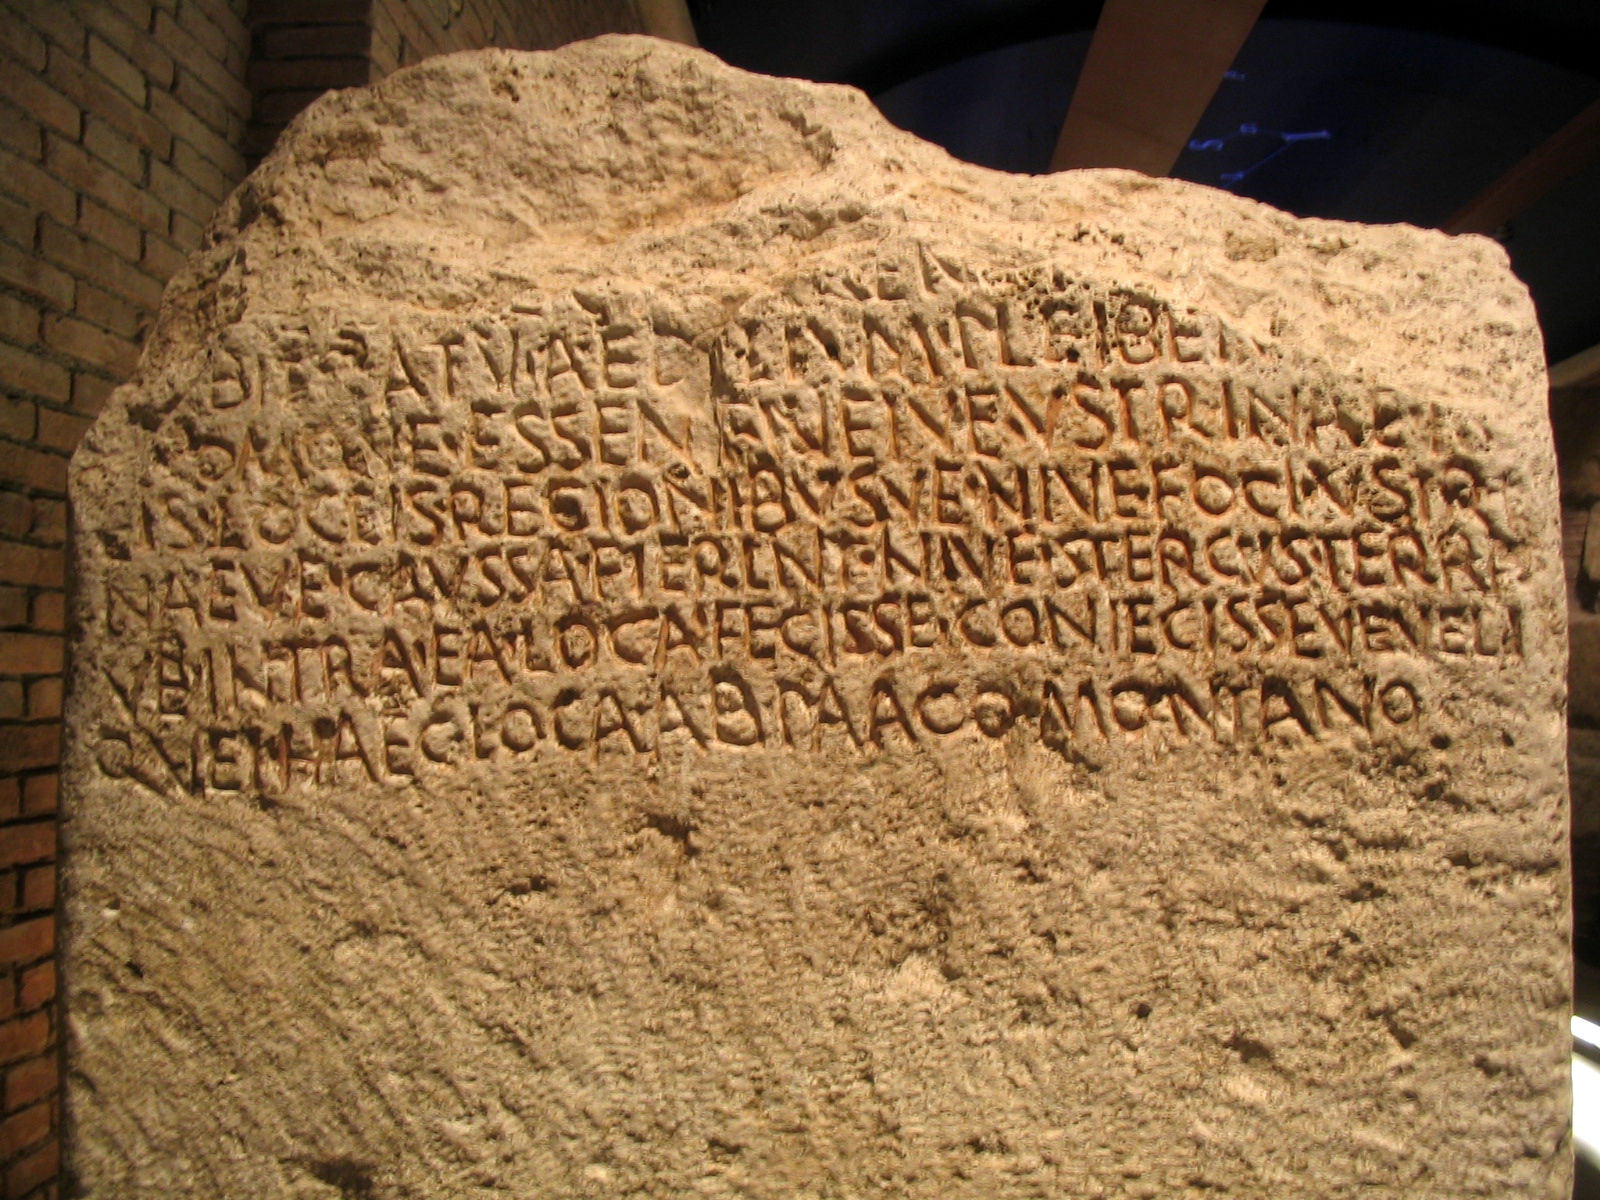 BITRATV AEDILIVM PLEIBEI
COMQVE·ESSENT NEIVE VSTRINAE IN
EIS·LOCEIS REGIONIBVSVE NIVE FOCI VSTRI
NAEVE·CAVSSA FIERENT NIVE STERCVS TERRA
VE INTRA EA·LOCA FECISSE·CONIECISSEVE VELI
QVEI HAEC LOCA AB PAAGO MONTANO